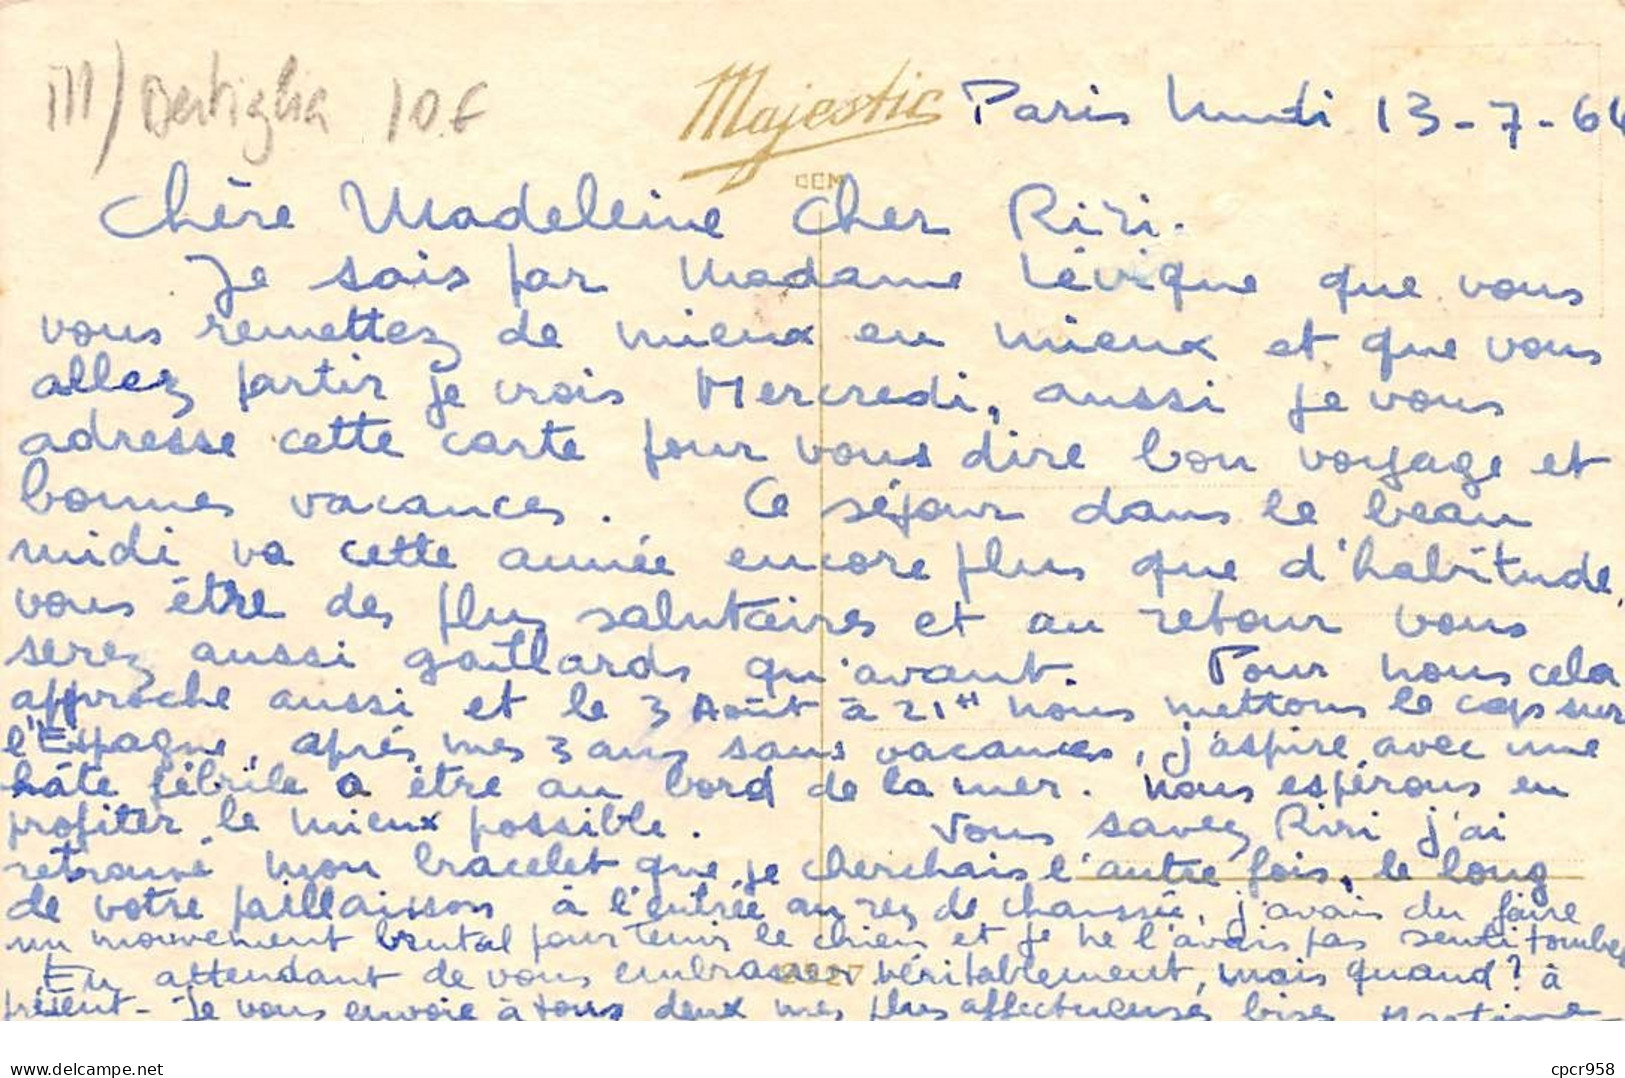 III/ Bertiglia 10.F
Majestic
Paris Lundi 13-7-64
CEM
Chère Madeleine Cher Riri.
Je sais par Madame Lévique que vous
vous remettez de mieux en mieux et que vous
allez partir je crois Mercredi, aussi je vous
adresse cette carte pour vous dire bon voyage et
bonnes vacances. Ce séjour dans le beau
midi va cette année encore plus que d'habitude,
vous être des plus salutaires et au retour vous
serez aussi gaillards qu'avant. Pour nous cela
approche aussi et le 3 Août à 21H nous mettons le cap sur
l'Espagne, après mes 3 ans sans vacances, j'aspire avec une
hâte fébrile à être au bord de la mer. Nous espérons en
profiter le mieux possible. Vous savez Riri j'ai
retrouvé mon bracelet que je cherchais l'autre fois, le long
de votre paillaisson à l'entrée au rez de chaussée, j'avais du faire
un mouvement brutal pour tenir le chien et je ne l'avais pas senti tomber
En attendant de vous embrasser véritablement, mais quand? à
présent - Je vous envoie à tous deux mes plus affectueuses bises Martine
delcampe.net
cpcr958